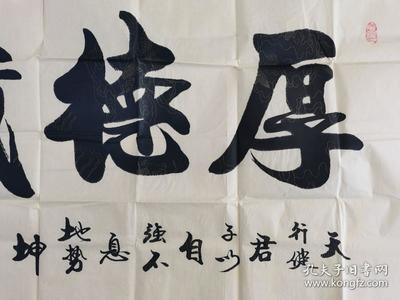 厚德
天行健君子以自強不息地势坤
孔夫子旧书网
kongfz.com